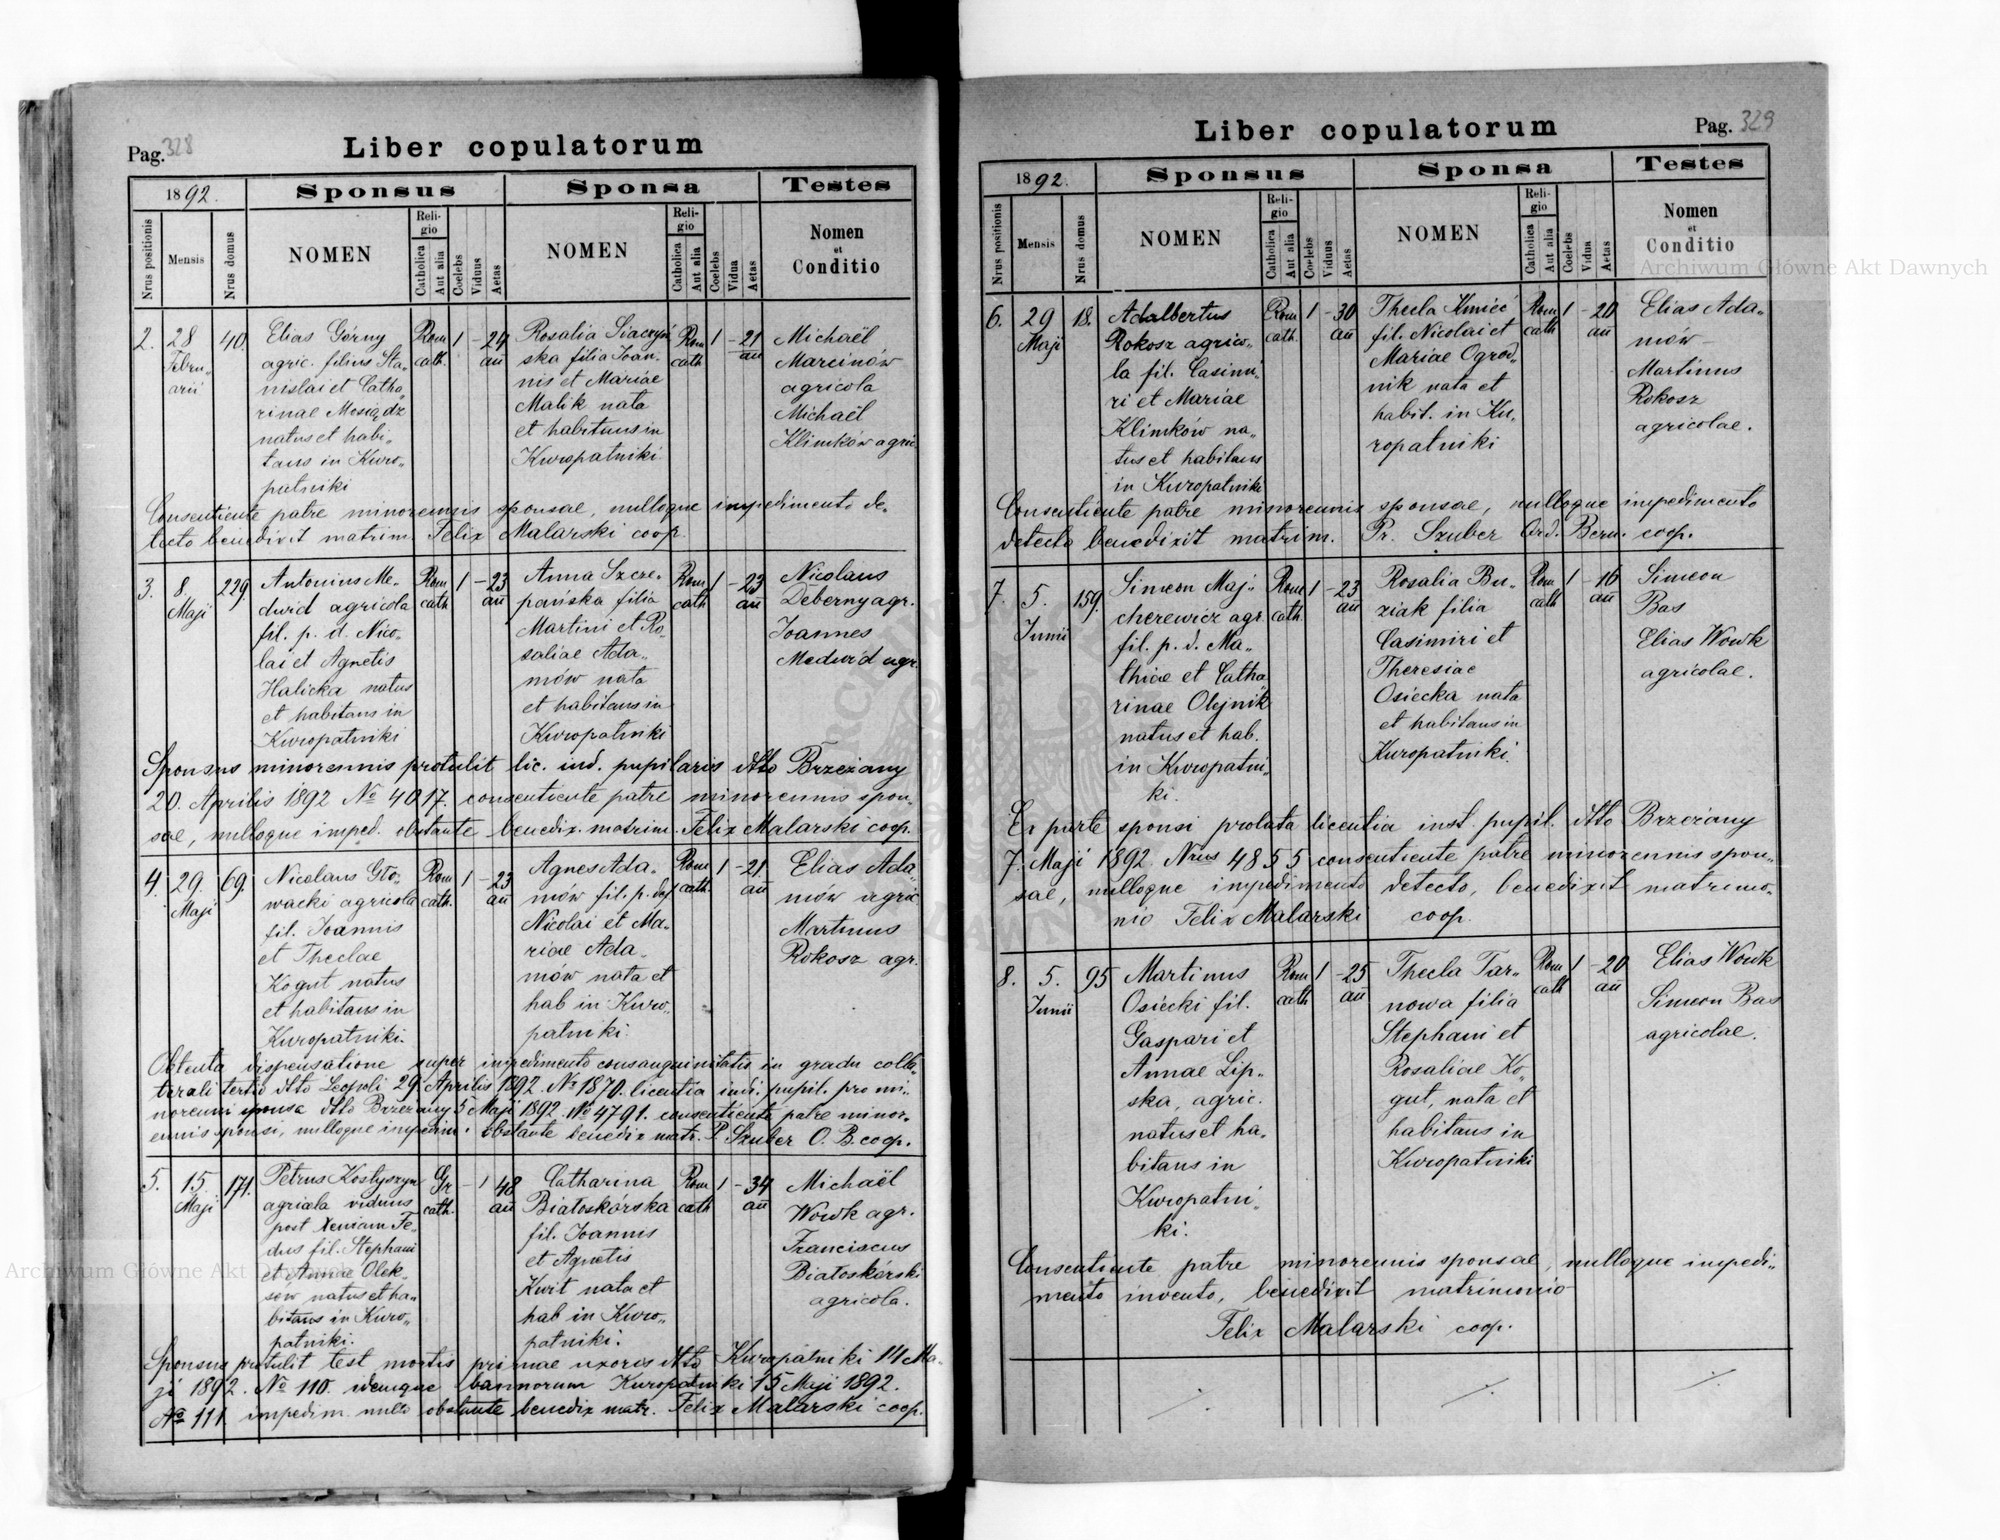 Pag. 328
Liber copulatorum
1892.
Sponsus
Sponsa
Testes
Nrus positionis
Mensis
Nrus domus
NOMEN
Religio
Catholica
Aut alia
Coelebs
Viduus
Aetas
NOMEN
Religio
Catholica
Aut alia
Coelebs
Vidua
Aetas
Nomen
et
Conditio
2.
28
Febru„
arii
40.
Elias Górny
agric. filius Sta„
nislai et Catha„
rinae Mosiądz
natus et habi„
tans in Kuro„
patniki
Rom
cath.
1
-
24
añ
Rosalia Siaczyń
ska filia Joan„
nis et Mariae
Malik nata
et habitans in
Kuropatniki.
Rom
cath
1
-
21
añ
Michaël
Marcinów
agricola
Michaël
Klimków agric
Consentiente patre minorennis sponsae, nulloque impedimento de„
tecto benedixit matrim. Felix Malarski coop.
3.
8
Maji
229
Antonius Me„
dwid agricola
fil. p. d. Nico„
lai et Agnetis
Halicka natus
et habitans in
Kuropatniki
Rom
cath
1
-
23
añ
Anna Szcze„
pańska filia
Martini et Ro„
saliae Ada„
mów nata
et habitans in
Kuropatniki
Rom
cath
1
-
23
añ
Nicolaus
Deberny agr.
Joannes
Medwid agr.
Sponsus minorennis protulit lic. ind. pupilaris dtto Brzeżany
20. Aprilis 1892 No 4017. consentiente patre minorennis spon„
sae, nulloque imped. obstante benedix. matrim. Felix Malarski coop.
4.
29.
Maji
69.
Nicolaus Gło„
wacki agricola
fil. Joannis
et Theclae
Kogut natus
et habitans in
Kuropatniki.
Rom
cath.
1
-
23
añ
Agnes Ada„
mów fil. p. def
Nicolai et Ma„
riae Ada„
mów nata et
hab in Kuro„
patniki.
Rom
cath.
1
-
21.
añ
Elias Ada„
mów agric
Martinus
Rokosz agr.
Obtenta dispensatione super impedimento consanguinitatis in gradu colla„
terali tertio dtto Leopoli 29. Aprilis 1892. No 1870. licentia ind. pupil. pro mi„
norenni sponsa dtto Brzeżany 5 Maji 1892. No 4791. consentiente patre minor„
ennis sponsi, nulloque impedim. obstante benedix matr. P. Szuber O. B. coop.
5.
15
Maji
171.
Petrus Kostyszyn
agricola viduus
post Xeniam Fe„
dus fil. Stephani
et Annae Olek„
sow natus et ha„
bitans in Kuro„
patniki.
Gr
cath.
-
1
48
añ
Catharina
Białoskórska
fil. Joannis
et Agnetis
Kwit nata et
hab in Kuro„
patniki.
Rom
cath
1
-
34
añ
Michaël
Wowk agr.
Franciscus
Białoskórski
agricola.
Sponsus protulit test mortis primae uxoris dtto Kuropatniki 14 Ma„
ji 1892. No 110. idemque bannorum Kuropatniki 15 Maji 1892.
No 111 impedim. nullo obstante benedix matr. Felix Malarski coop.
Liber copulatorum
Pag. 329
1892.
Sponsus
Sponsa
Testes
Nrus positionis
Mensis
Nrus domus
NOMEN
Religio
Catholica
Aut alia
Coelebs
Viduus
Aetas
NOMEN
Religio
Catholica
Aut alia
Coelebs
Vidua
Aetas
Nomen
et
Conditio
6.
29
Maji
18.
Adalbertus
Rokosz agrico„
la fil. Casimi„
ri et Mariae
Klimków na„
tus et habitans
in Kuropatniki
Rom
cath.
1
-
30
añ
Thecla Kmieć
fil. Nicolai et
Mariae Ogrod„
nik nata et
habit. in Ku„
ropatniki
Rom
cath
1
-
20
añ
Elias Ada„
mów -
Martinus
Rokosz
agricolae.
Consentiente patre minorennis sponsae, nulloque impedimento
detecto benedixit matrim. Pr. Szuber Ord. Bern. coop.
7.
5.
Junii
159.
Simeon Maj„
cherewicz agr.
fil. p. d. Ma„
thiae et Catha„
rinae Olejnik
natus et hab.
in Kuropatni„
ki.
Rom
cath.
1
-
23
añ
Rosalia Bu„
ziak filia
Casimiri et
Theresiae
Osiecka nata
et habitans in
Kuropatniki.
Rom
cath
1
-
16
añ
Simeon
Bas
Elias Wowk
agricolae.
Ex parte sponsi prolata licentia inst. pupil. dtto Brzeżany
7. Maji 1892. Nrus 4855 consentiente patre minorennis spon„
sae, nulloque impedimento detecto, benedixit matrimo„
nio Felix Malarski coop.
8.
5.
Junii
95
Martinus
Osiecki fil.
Gaspari et
Annae Lip„
ska, agric.
natus et ha„
bitans in
Kuropatni„
ki.
Rom
cath
1
-
25
añ
Thecla Tar„
nowa filia
Stephani et
Rosaliae Ko„
gut, nata et
habitans in
Kuropatniki
Rom
cath
1
-
20
añ
Elias Wowk
Simeon Bas
agricolae.
Consentiente patre minorennis sponsae, nulloque impedi„
mento invento, benedixit matrimonio
Felix Malarski coop.
Archiwum Główne Akt Dawnych
Archiwum Główne Akt Dawnych